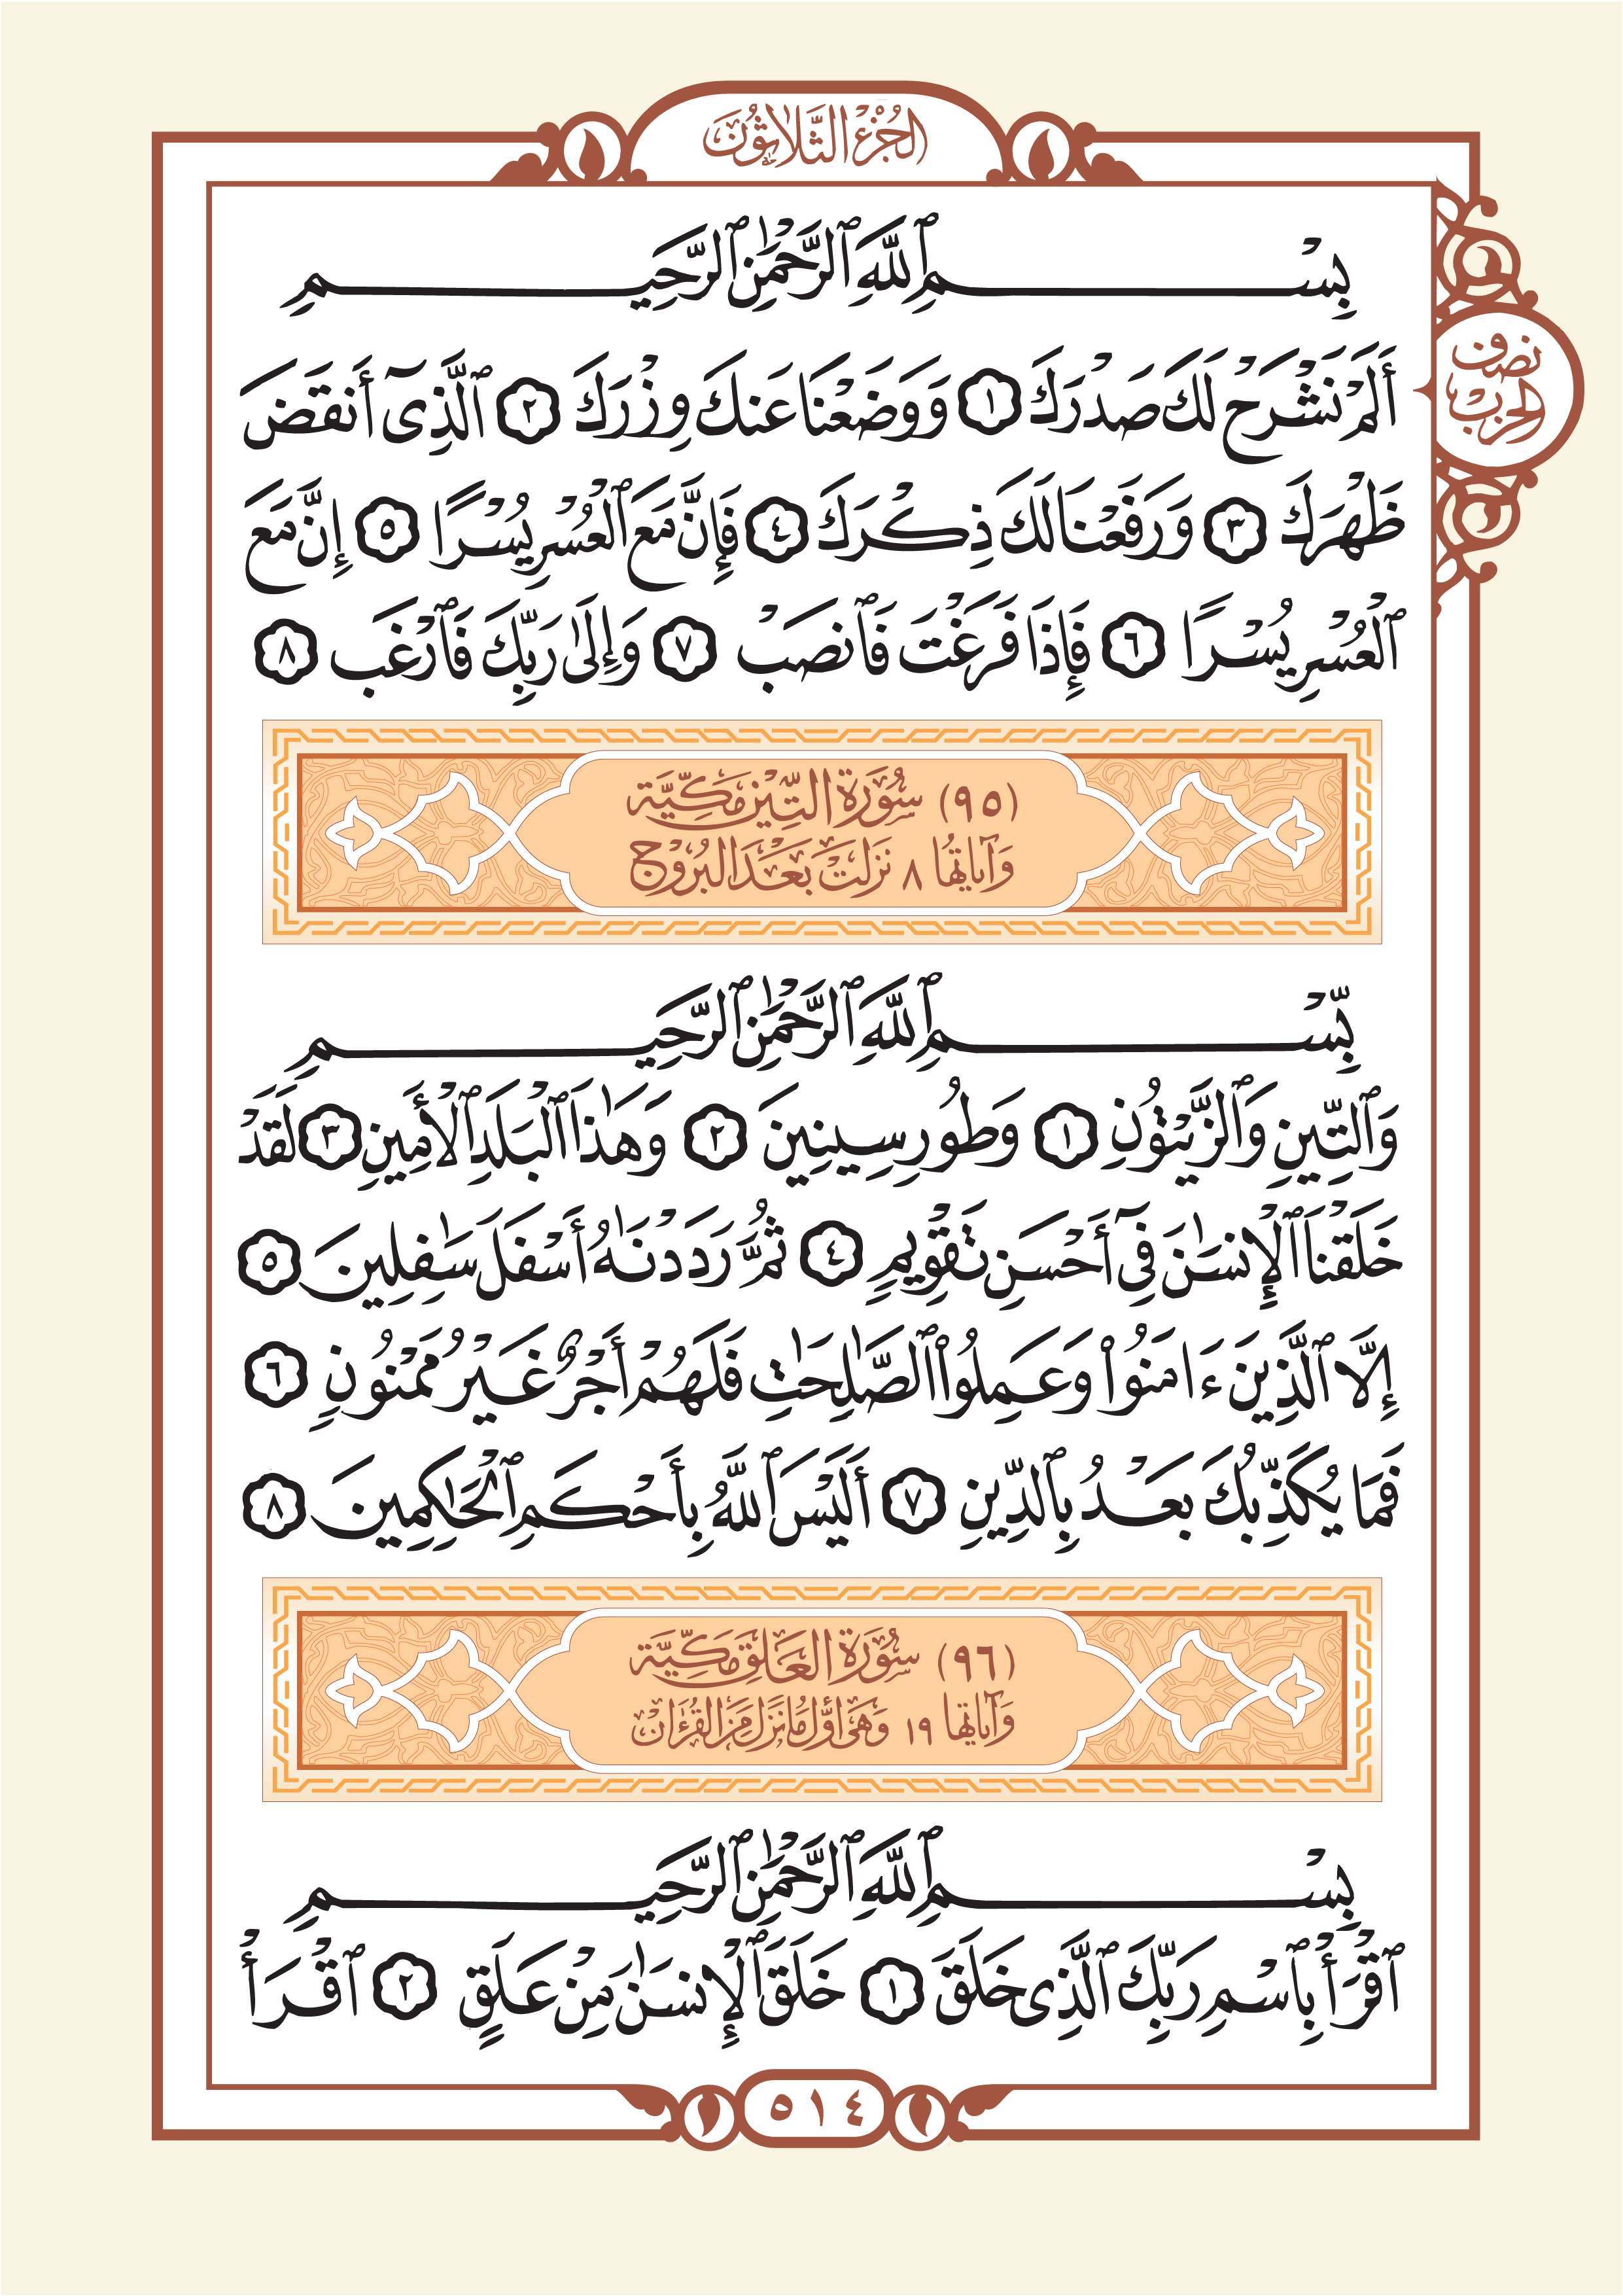 الجُزْءُ الثَّلَاثُونَ
بِسْمِ ٱللَّهِ ٱلرَّحْمَٰنِ ٱلرَّحِيمِ
أَلَمْ نَشْرَحْ لَكَ صَدْرَكَ ١ وَوَضَعْنَا عَنكَ وِزْرَكَ ٢ ٱلَّذِىٓ أَنقَضَ
نصف الحزب
ظَهْرَكَ ٣ وَرَفَعْنَا لَكَ ذِكْرَكَ ٤ فَإِنَّ مَعَ ٱلْعُسْرِ يُسْرًا ٥ إِنَّ مَعَ
ٱلْعُسْرِ يُسْرًا ٦ فَإِذَا فَرَغْتَ فَٱنصَبْ ٧ وَإِلَىٰ رَبِّكَ فَٱرْغَب ٨
(٩٥) سُورَةُ التِّينِ مَكِيَّة
وَآيَاتُهَا ٨ نَزَلَتْ بَعْدَ البُرُوجِ
بِّسْمِ ٱللَّهِ ٱلرَّحْمَٰنِ ٱلرَّحِيمِ
وَٱلتِّينِ وَٱلزَّيْتُونِ ١ وَطُورِ سِينِينَ ٢ وَهَٰذَا ٱلْبَلَدِ ٱلْأَمِينِ ٣ لَقَدْ
خَلَقْنَا ٱلْإِنسَٰنَ فِىٓ أَحْسَنِ تَقْوِيمٍ ٤ ثُمَّ رَدَدْنَٰهُ أَسْفَلَ سَٰفِلِينَ ٥
إِلَّا ٱلَّذِينَ ءَامَنُوا۟ وَعَمِلُوا۟ ٱلصَّٰلِحَٰتِ فَلَهُمْ أَجْرٌ غَيْرُ مَمْنُونٍ ٦
فَمَا يُكَذِّبُكَ بَعْدُ بِٱلدِّينِ ٧ أَلَيْسَ ٱللَّهُ بِأَحْكَمِ ٱلْحَٰكِمِينَ ٨
(٩٦) سُورَةُ العَلَقِ مَكِيَّة
وَآيَاتُهَا ١٩ وَهِيَ أَوَّلُ مَا نَزَلَ مِنَ القُرْءَانِ
بِسْمِ ٱللَّهِ ٱلرَّحْمَٰنِ ٱلرَّحِيمِ
ٱقْرَأْ بِٱسْمِ رَبِّكَ ٱلَّذِى خَلَقَ ١ خَلَقَ ٱلْإِنسَٰنَ مِنْ عَلَقٍ ٢ ٱقْرَأْ
٥١٤